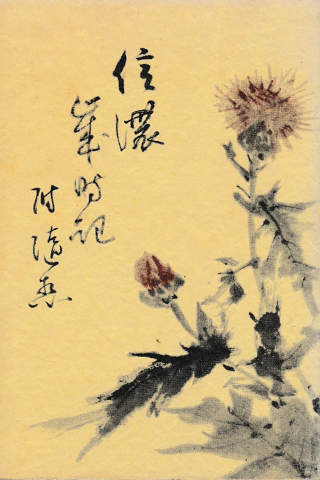 信濃
歳時記
附随想